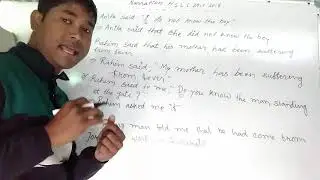 Narration H.S.L.C
Anita said "I do not know the boy"
Anita said that she did not know the boy
Rahim said that his mother had been suffering
from fever
Rahim said, "My mother has been suffering
from fever"
Rahim said to me "Do you know the man standing
at the gate?"
Rahim asked me if
man told me that he had come from